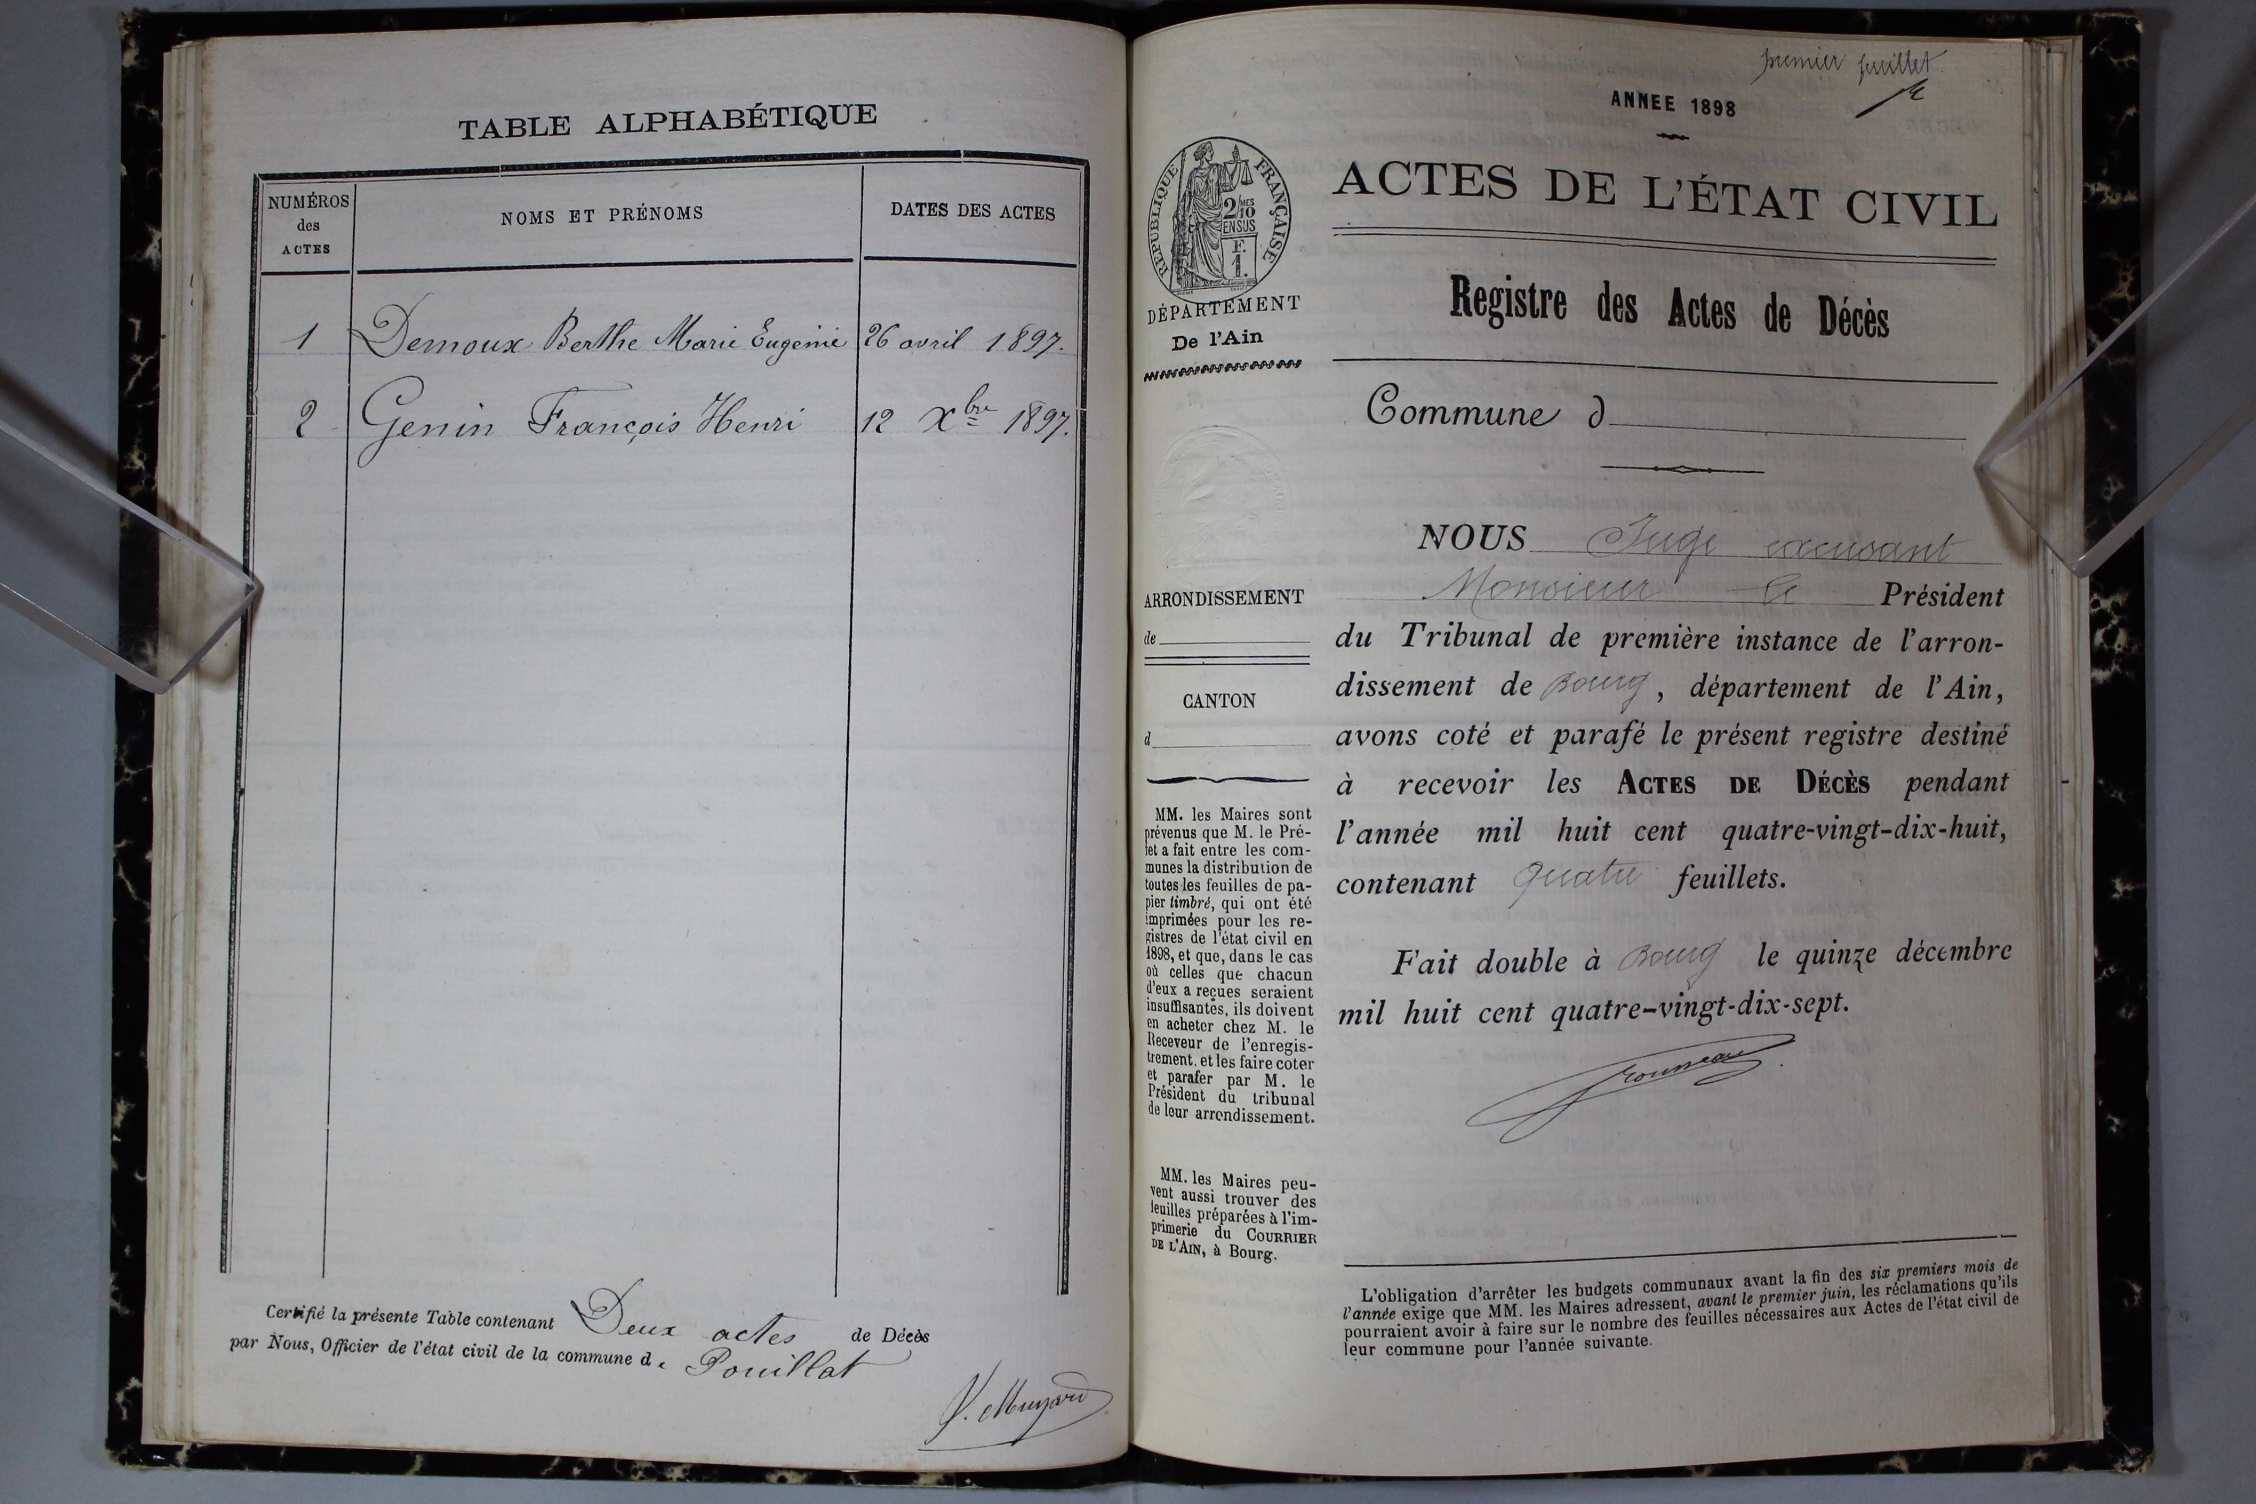 TABLE ALPHABÉTIQUE
NUMÉROS
des
ACTES
NOMS ET PRÉNOMS
DATES DES ACTES
1 Demoux Berthe Marie Eugénie 26 avril 1897.
2 Genin François Henri 12 Xbre 1897.
Certifié la présente Table contenant Deux actes de Décès
par Nous, Officier de l'état civil de la commune de Pouillat
premier feuillet
ANNEE 1898
RÉPUBLIQUE FRANÇAISE
2/10
MES
EN SUS
F.
1.
DÉPARTEMENT
De l'Ain
ACTES DE L'ÉTAT CIVIL
Registre des Actes de Décès
Commune d
ARRONDISSEMENT
de
CANTON
d
MM. les Maires sont
prévenus que M. le Pré-
fet a fait entre les com-
munes la distribution de
toutes les feuilles de pa-
pier timbré, qui ont été
imprimées pour les re-
gistres de l'état civil en
1898, et que, dans le cas
où celles que chacun
d'eux a reçues seraient
insuffisantes, ils doivent
en acheter chez M. le
Receveur de l'enregis-
trement, et les faire coter
et parafer par M. le
Président du tribunal
de leur arrondissement.
MM. les Maires peu-
vent aussi trouver des
feuilles préparées à l'im-
primerie du COURRIER
DE L'AIN, à Bourg.
NOUS Juge excusant
Monsieur le Président
du Tribunal de première instance de l'arron-
dissement de Bourg, département de l'Ain,
avons coté et parafé le présent registre destiné
à recevoir les ACTES DE DÉCÈS pendant
l'année mil huit cent quatre-vingt-dix-huit,
contenant quatre feuillets.
Fait double à Bourg le quinze décembre
mil huit cent quatre-vingt-dix-sept.
L'obligation d'arrêter les budgets communaux avant la fin des six premiers mois de
l'année exige que MM. les Maires adressent, avant le premier juin, les réclamations qu'ils
pourraient avoir à faire sur le nombre des feuilles nécessaires aux Actes de l'état civil de
leur commune pour l'année suivante.